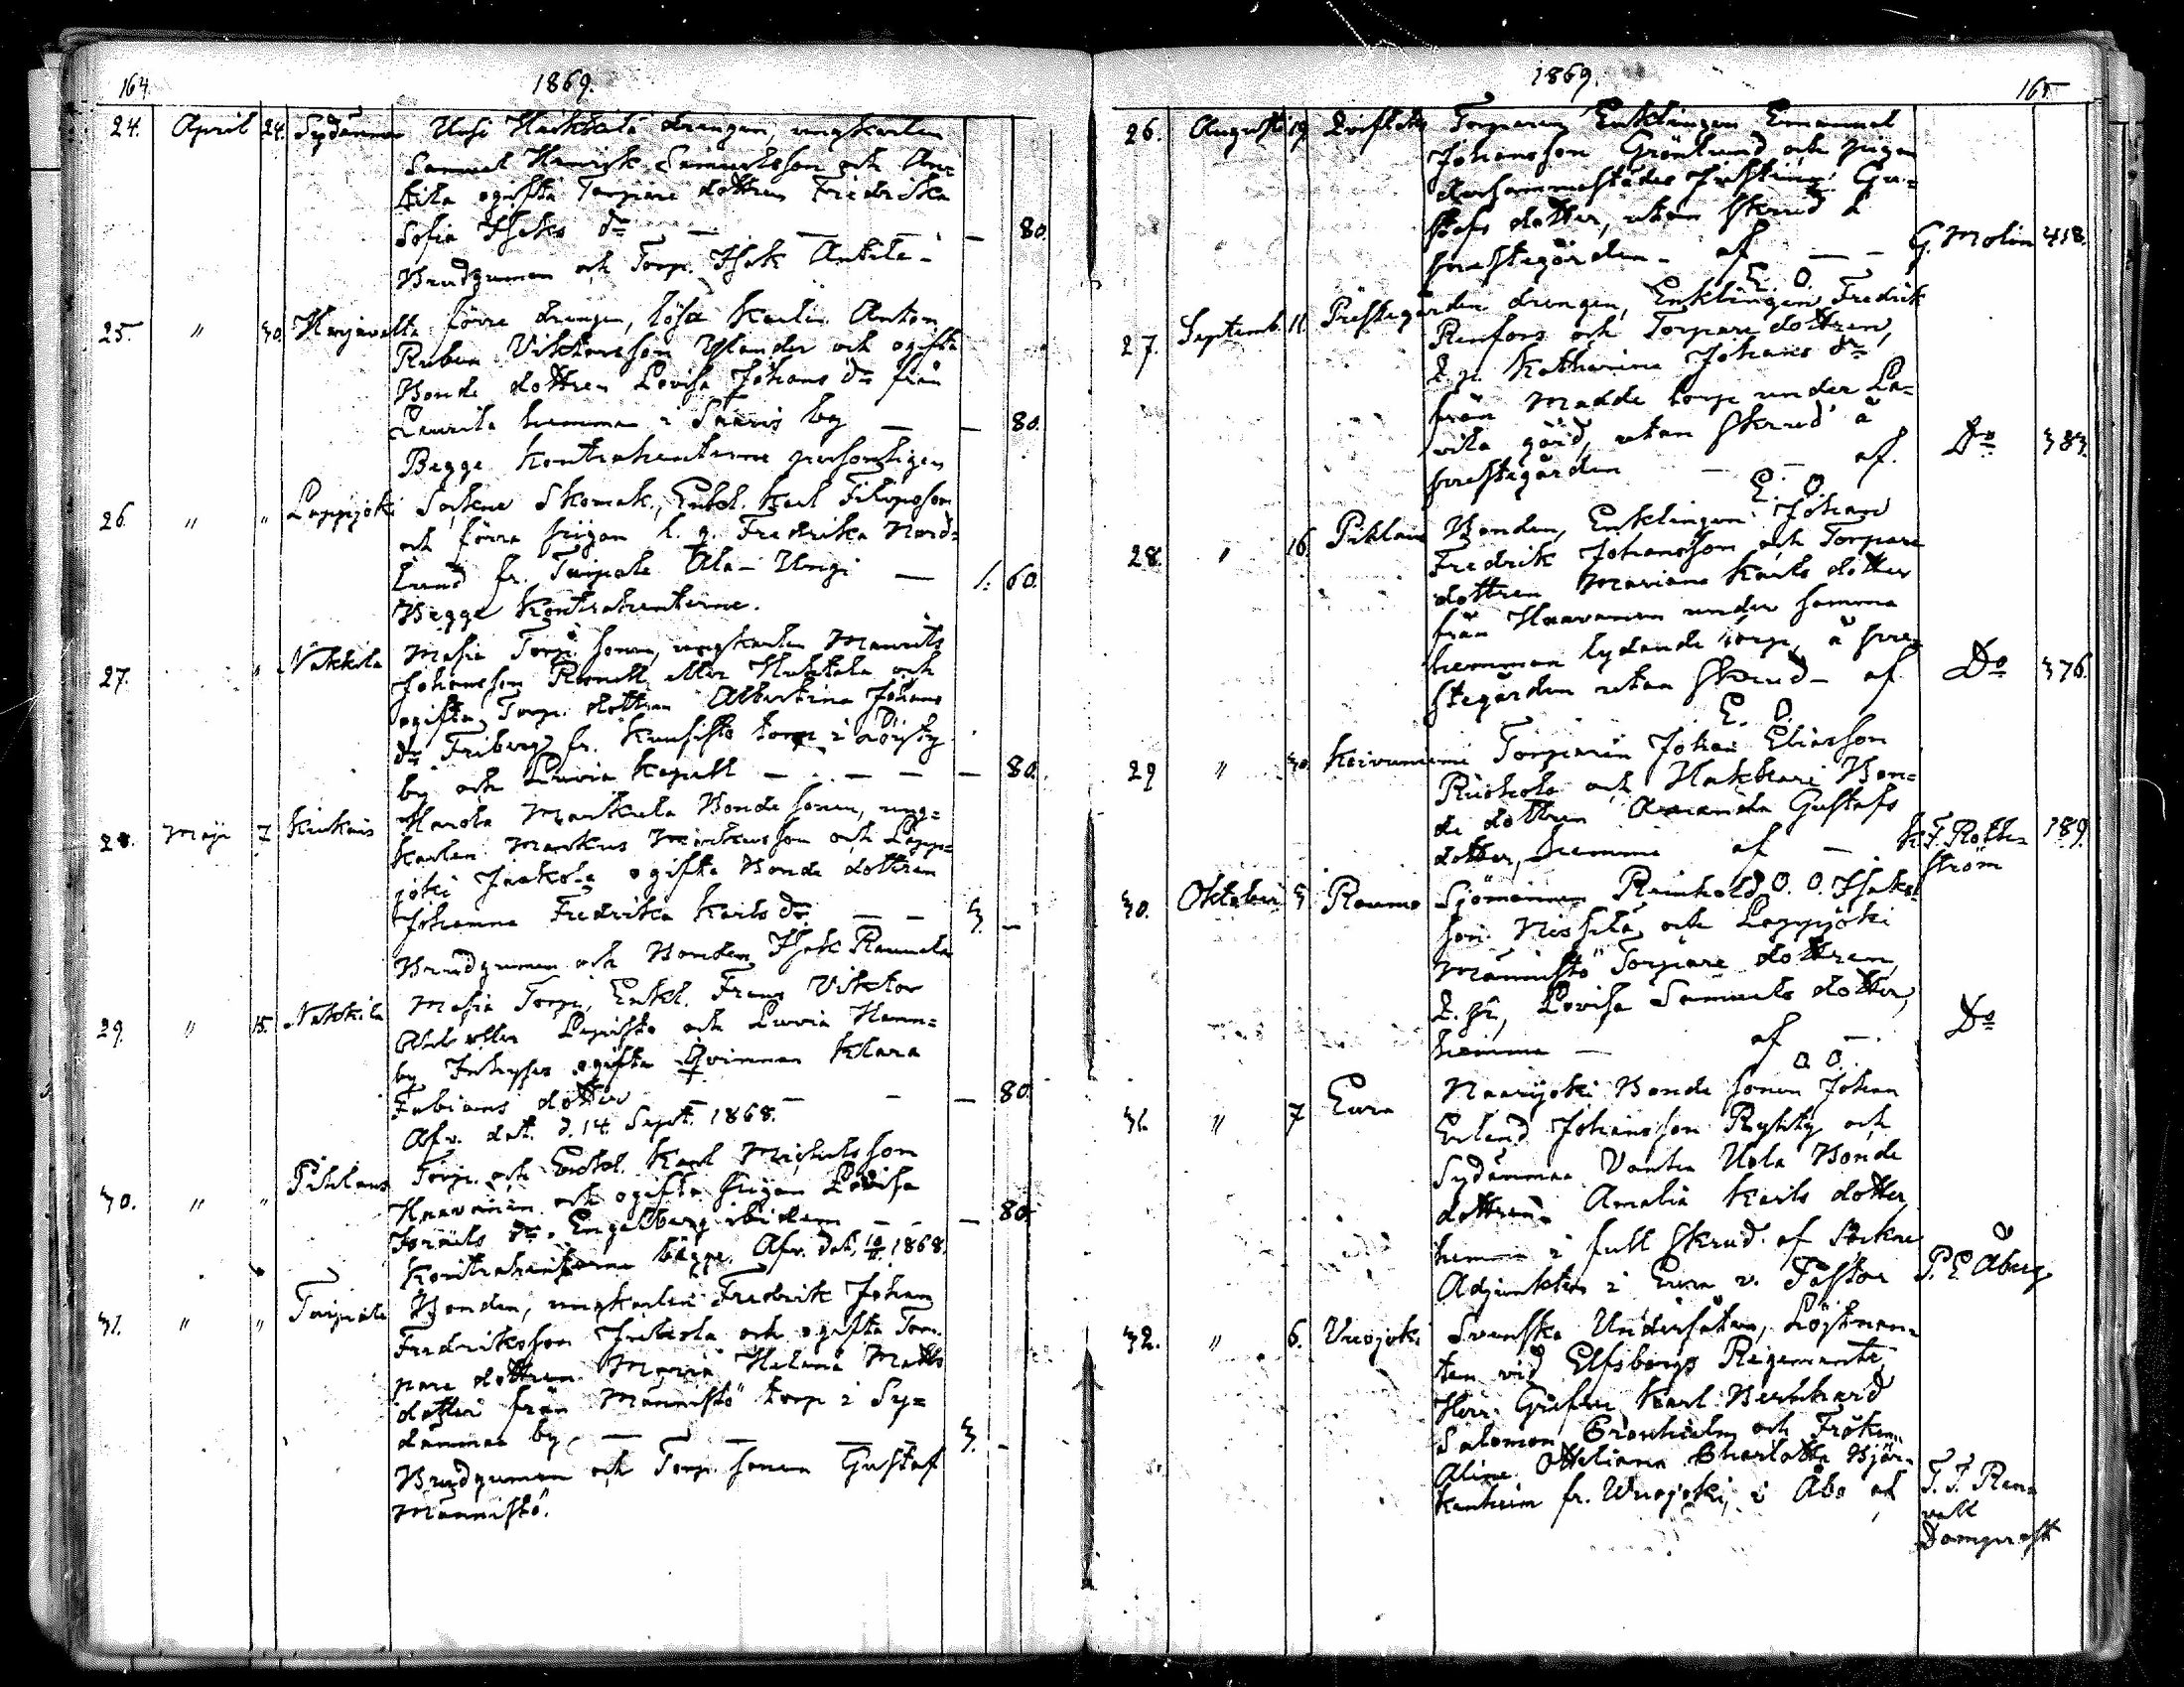 164.
1869.
24. April 24. Sydänmaa Uusi Hakkala drängen, ungkarlen
Samuel Henrik Samuelsson och An=
tila ogifta Torpare dottren Fredrika
Sofia Isaks dr — — — — 80.
Brudgummen och Torp. Isak Anttila
25. " 30. Harjavalta förre drängen, lösa karlen Anton
Ruben Viktorsson Ylander och ogifta
Bonde dottren Lovisa Johans dr från
Laurila hemman i Saaris by — — 80.
Begge kontrahenterne personligen
26. " " Lappijoki Sockne Skomak., Enkl. Karl Filipsson
och förra pigan l. q. Fredrika Nord=
lund fr. Taipale Ala-Ungi — 1. 60.
Begge Kontrahenterne.
27. " Nakkila Masia Torp. sonen, ungkarlen Maurits
Johansson eller Huhtala och
ogifta Torp. dottren Albertina Johans
dr Friberg fr. Kuusisto torp i
by och Luvia Kapell — — — — 80.
28. Maji 7 Kiukais Harola Markula Bonde sonen, ung=
karlen Markus Markusson och Lapp=
joki Jaakola ogifta Bonde dottren
Johanna Fredrika Karls dr. — — 3. —
Brudgummen och Bonden Isak Raumala
29. " 15. Nakkila Masia Torp., Enkl. Frans Viktor
eller Lepistö och Luvia Hann=
by Inhyses ogifta Qvinnan Klara
Fabians dotter — — — 80.
Afv. dat. d. 14 Sept. 1868.
30. " " Pihlaus Torp. och Enkl. Karl Michelsson
Haavoinen och ogifta pigan Lovisa
Israels dr. Engelberg ibidem — — — 80.
Kontrahenterne bägge. Afv. dat. 1868.
31. " " Taipale Bonden, ungkarlen Fredrik Johan
Fredriksson och ogifta Tor=
pare dottren Maria Helena Matts
dotter från Männistö torp i Sy=
dänmaa by — — — 3. -
Brudgummen och Torp. sonen Gustaf
Männistö.
1869.
165.
26. Augusti 19. Torparen Enklingen Emanuel
Johansson Grönlund och pigan
darsammastädes Justina Gu=
stafs dotter, utan skrud å
prestegården - af — — G. Molin 418.
E. O.
27. Septemb. 11 Prestegården drengen, Enklingen Fredrik
Renfors och Torpare dottren,
Q. p. Katharina Johans dr
från Madde torp under La=
vila gård, utan skrud å
prestegården — — af. Do 383.
E. O.
28. " 16. Pihlaus Bonden, Enklingen Johan
Fredrik Johansson och Torpare
dottren Mariana Karls dotter
från Haavoinen under samma
hemman lydande torp, å pre=
stegården utan skrud - af Do 376.
E. O.
29 " 30. Koivuniemi Torparen Johan Eliasson
Riichola och Hakkari Bon=
de dottren Amanda Gustafs
dotter, hemma af — K. F. Roth= 189.
ström
30. Oktober 3 Raumo Sjömannen Reinhold Isaks=
son Nissilä och Lappijoki
Männistö Torpare dottren,
Q. p., Lovisa Samuels dotter,
hemma — af — Do
O. O.
31. " 7 Eura Naarjoki Bonde sonen Johan
Erland Johansson Pyhty och
Sydänmaa Vanha Uola Bonde
dottren Amalia Karls dotter,
hemma i full skrud af Sockne
Adjunkten i Eura v. Pastor P. E. Åberg
32. " 6. Vuojoki Svenska Undersåten, Löjtnan=
ten vid Elfsborgs Regemente,
Herr Grefven Karl Bernhard
Salomon Cronhielm och Fröken
Aline Ottiliana Charlotta Björ=
kenheim fr. Wuojoki, i Åbo af T. T. Ren=
vall
Domprost